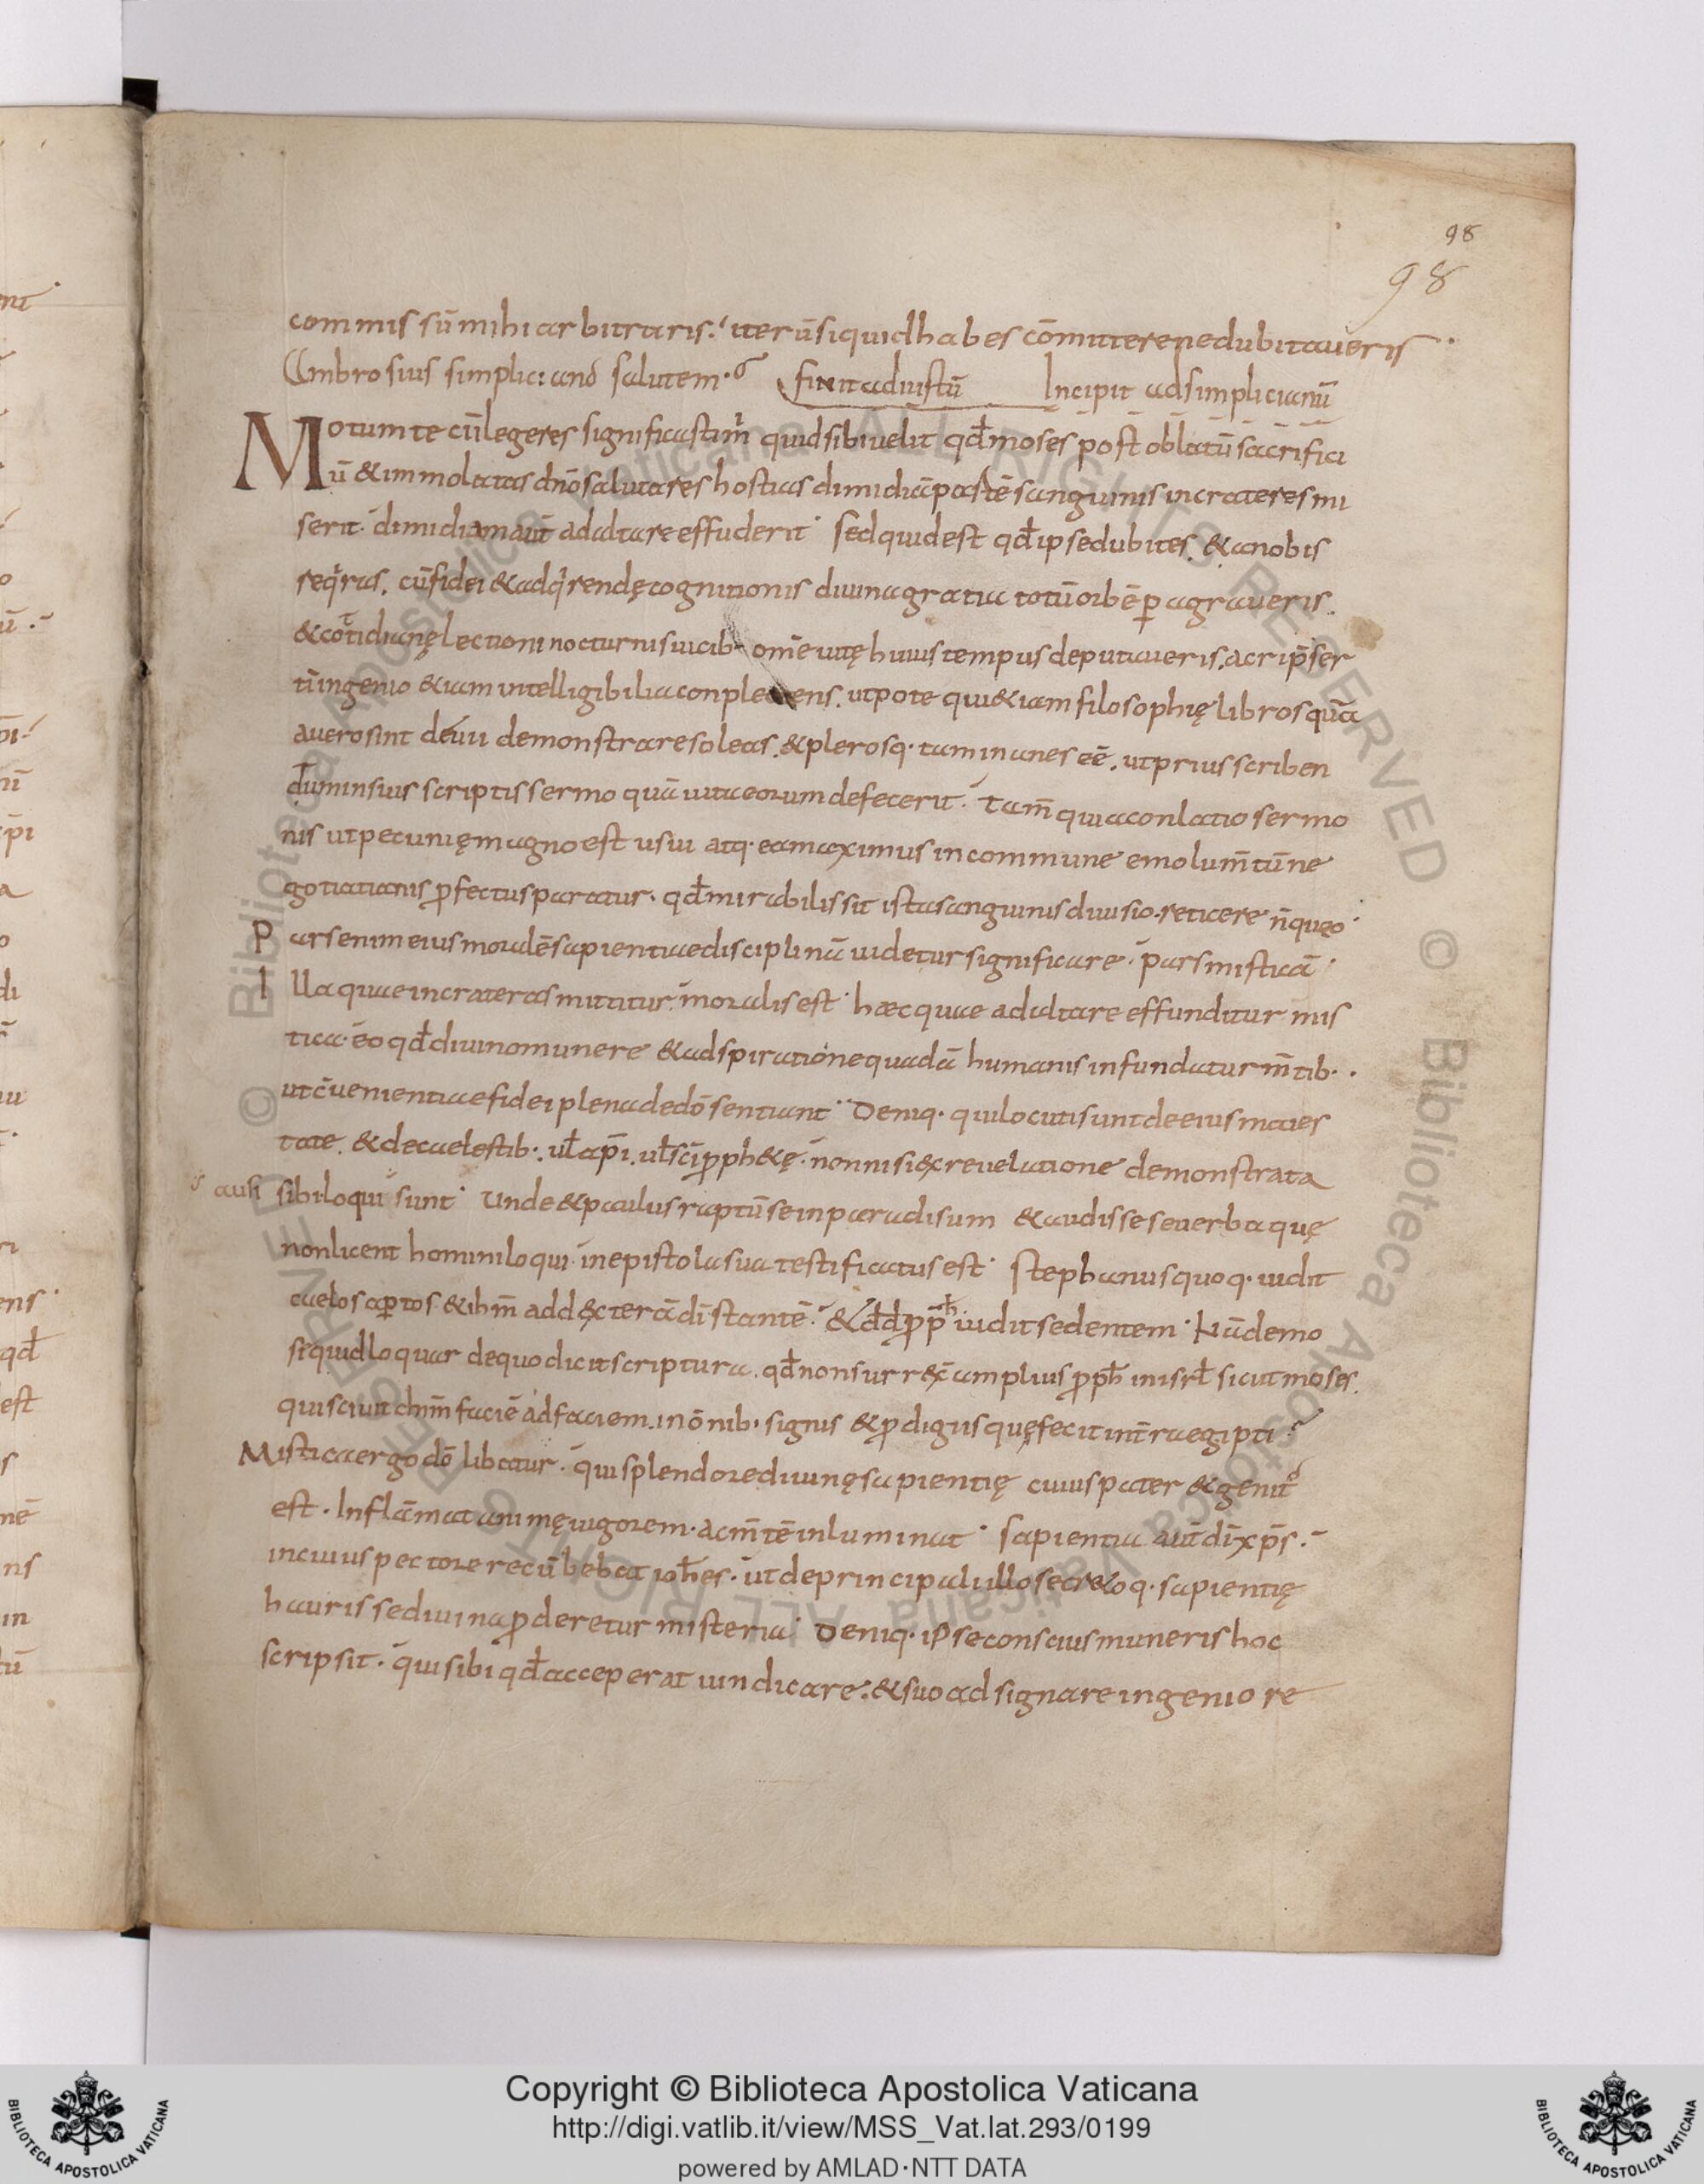 98
98
commissū mihi arbitraris. iterū siquid habes cōmittere ne dubitaueris
Ambrosius simpliciano salutem. finit ad iustū Incipit ad simplicianū
Motum te cū legeres significasti m̄ quid sibi uelit qđ moses post oblatū sacrifici
ū & immolatas dn̄o salutares hostias dimidiā partē sanguinis in crateres mi
serit. dimidiam aut̄ ad altare effuderit. sed quid est qđ ipse dubites. & a nobis
reqras. cū fidei & adqrendę cognitionis diuina gratia totū orbē ꝑagraueris.
& cotidianę lectioni nocturnis uicib· om̄e uitę huius tempus deputaueris. acri p̄ser
tī ingenio &iam intelligibilia conplectens. utpote qui &iam filosophię libros quā
a uero sint deuii demonstrare soleas. & plerosq· tam inanes eē. ut prius scriben
dum in suis scriptis sermo quā uita eorum defecerit. tam̄ quia conlatio sermo
nis ut pecunię magno est usui atq· ea maximus in commune emolum̄tū ne
gotiationis ꝓfectus paratur. qđ mirabilis sit ista sanguinis diuisio. reticere n̄ queo.
Pars enim eius moralē sapientiae disciplinā uidetur significare. pars misticā.
Illa quae in crateras mittitur moralis est. haec quae ad altare effunditur mis
tica. eo qđ diuino munere & adspiratione quadā humanis infundatur m̄tib·.
ut c̄uenientiae fidei plena de dō sentiant. Deniq· qui locuti sunt de eius maies
tate. & de caelestib·. ul̄ ap̄i. ul̄ sc̄i ꝓph&ę. non nisi ex reuelatione demonstrata
ausi sibi loqui sunt. Unde & paulus raptū se in paradisum & audisse se uerba quę
non licent homini loqui in epistola sua testificatus est. Stephanus quoq· uidit
caelos aꝑtos & ihm̄ ad dexterā dī stantē. & dd̄ ꝓp̄h uidit sedentem. Nā de mo
se quid loquar de quo dicit scriptura. qđ non surrex̄ amplius ꝓph̄ in isrl̄ sicut moses.
qui sciuit dn̄m faciē ad faciem. in ōnib· signis & ꝓdigiis quę fecit in t̄ra egipti.
Mistica ergo dō libatur. qui splendore diuinę sapientię cuius pater & genit̄
est. Inflāmat animę uigorem. ac m̄tē inluminat. Sapientia aut̄ dī xp̄s.
in cuius pectore recūbebat ioh̄es. ut de principali illo secr&oq· sapientię
haurisse diuina ꝓderetur misteria. Deniq· ipse conscius muneris hoc
scripsit. qui sibi qđ acceperat uindicare. & suo adsignare ingenio re
Copyright © Biblioteca Apostolica Vaticana
http://digi.vatlib.it/view/MSS_Vat.lat.293/0199
powered by AMLAD·NTT DATA
BIBLIOTECA APOSTOLICA VATICANA
BIBLIOTECA APOSTOLICA VATICANA